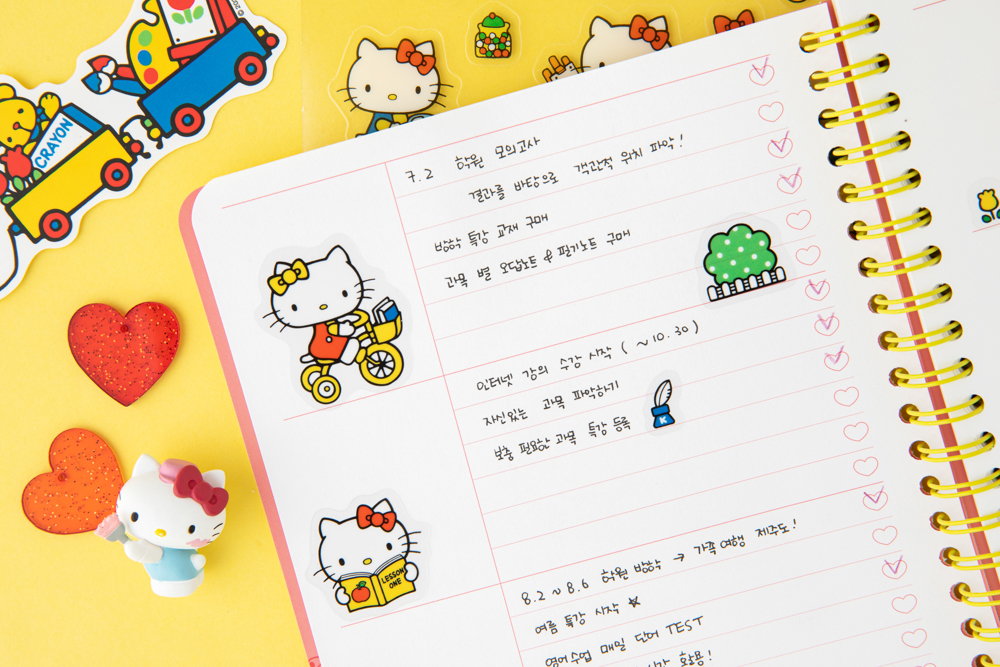 CRAYON
7.2 학원 모의고사
결과를 바탕으로 객관적 위치 파악!
방학 특강 교재 구매
과목 별 오답노트 & 필기노트 구매
인터넷 강의 수강 시작 ( ~10.30)
자신있는 과목 파악하기
보충 필요한 과목 특강 등록
K
LESSON
ONE
8.2 ~ 8.6 학원 방학 → 가족여행 제주도!
여름 특강 시작 ★
영어수업 매일 단어 TEST
활용!